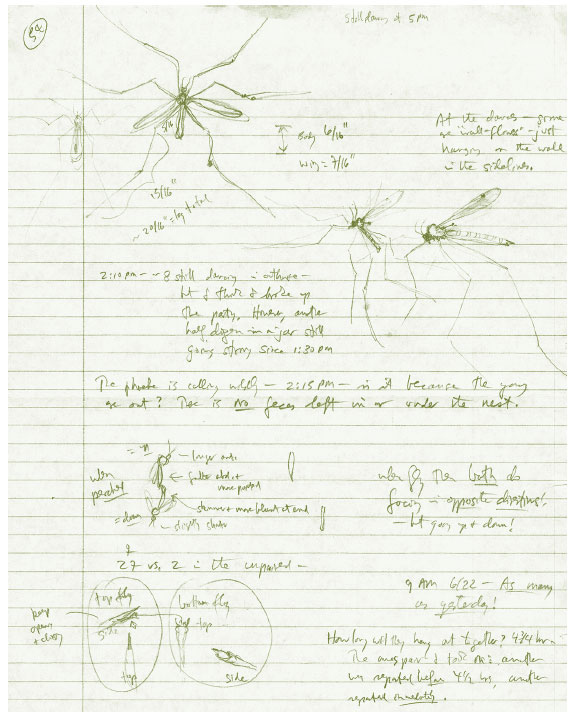 Still dancing at 5 pm
At the dances - some
are "wall-flowers" - just
hanging on the wall
in the sidelines.
5/16
Body 6/16"
Wing = 7/16"
13/16"
~ 20/16" = leg total
2:10 pm - ~ 8 still dancing in outhouse -
but I think I broke up
the party. However, another
half dozen in a jar still
going strong since 1:30 pm
The phoebe is calling wildly - 2:15 pm - is it because the young
are out? There is NO feces left in or under the nest.
= up
longer ant.
when
perched
fatter abd. +
more pointed
slimmer + more blunt at end
= down
slightly shorter
when fly then both do
facing in opposite directions!
- but going up + down!
27 vs. 2 in the unpaired -
9 AM 6/22 - As many
as yesterday!
top fly
bottom fly
keep
opening
+ closing
side
top
top
side
How long will they hang out together? 4 3/4 hrs -
The ones pair I took in: another
was separated before 4 1/2 hrs, another
separated immediately.